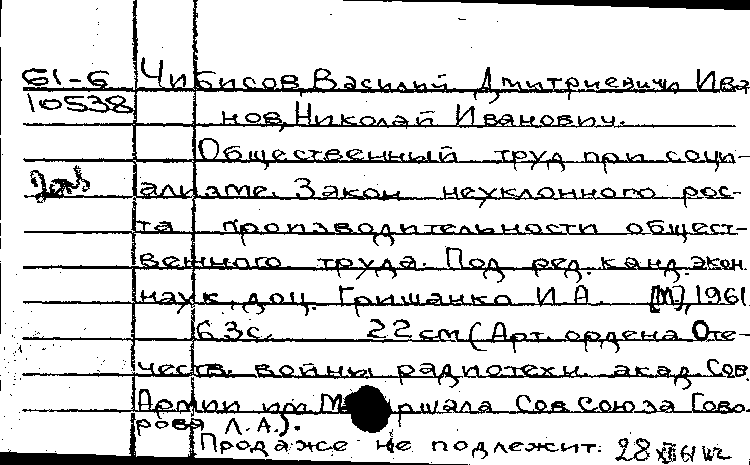 61-6 Чибисов, Василий Дмитриевич и Ива-
10538 нов, Николай Иванович.
Общественный труд при соци-
ализме. Закон неуклонного рос-
та производительности общест-
венного труда. Под ред. канд. экон.
наук, доц. Гришанко И.А. [М], 1961
63с. 22 см (Арт. ордена Оте-
честв. войны радиотехн. акад. Сов.
Армии им Маршала Сов Союза Гово-
рова Л.А.).
Продаже не подлежит. 28 XII 61